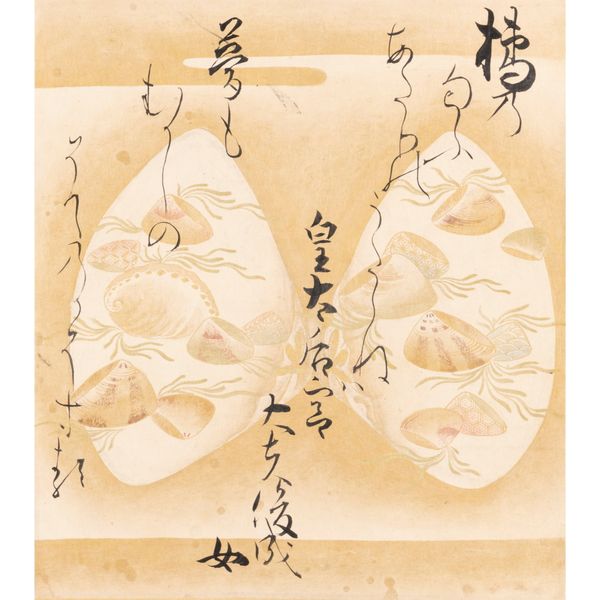 橘乃
匂ふ
あたりのうたゝねは
夢も
むかしの
そて乃かそする
皇太后宮
大夫俊成
女